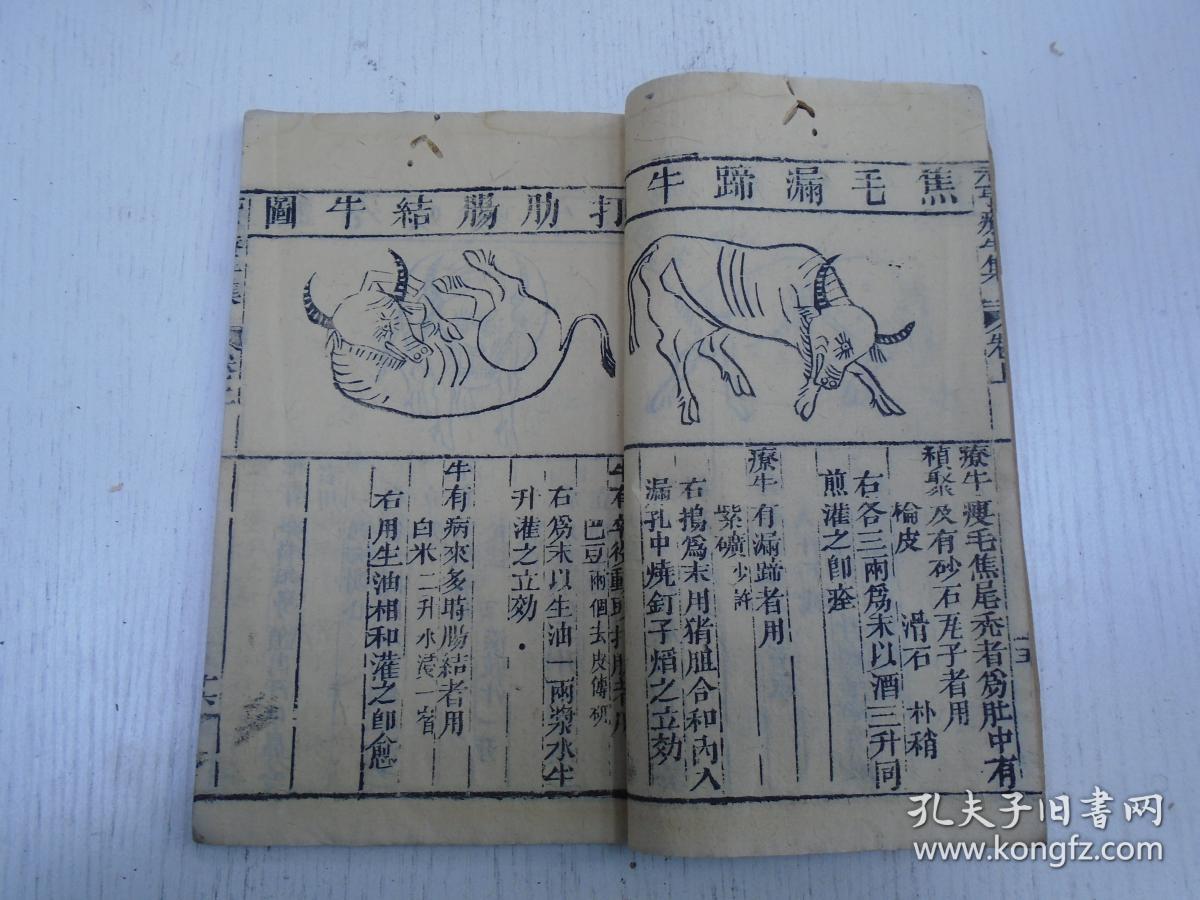 焦毛漏蹄牛
療牛瘦毛焦尾禿者為肚中有
積聚及有砂石瓦子者用
榆皮 滑石 朴稍
右各三兩為末以酒三升同
煎灌之即痊
療牛有漏蹄者用
紫礦少許
右搗為末用猪脂合和內入
漏孔中燒釘子熖之立効
打肋腸結牛圖
巴豆兩個去皮傳研
右為末以生油一兩漿水牛
升灌之立効
牛有病來多時腸結者用
白米二升水浸一宿
右用生油相和灌之即愈
孔夫子旧书网
www.kongfz.com